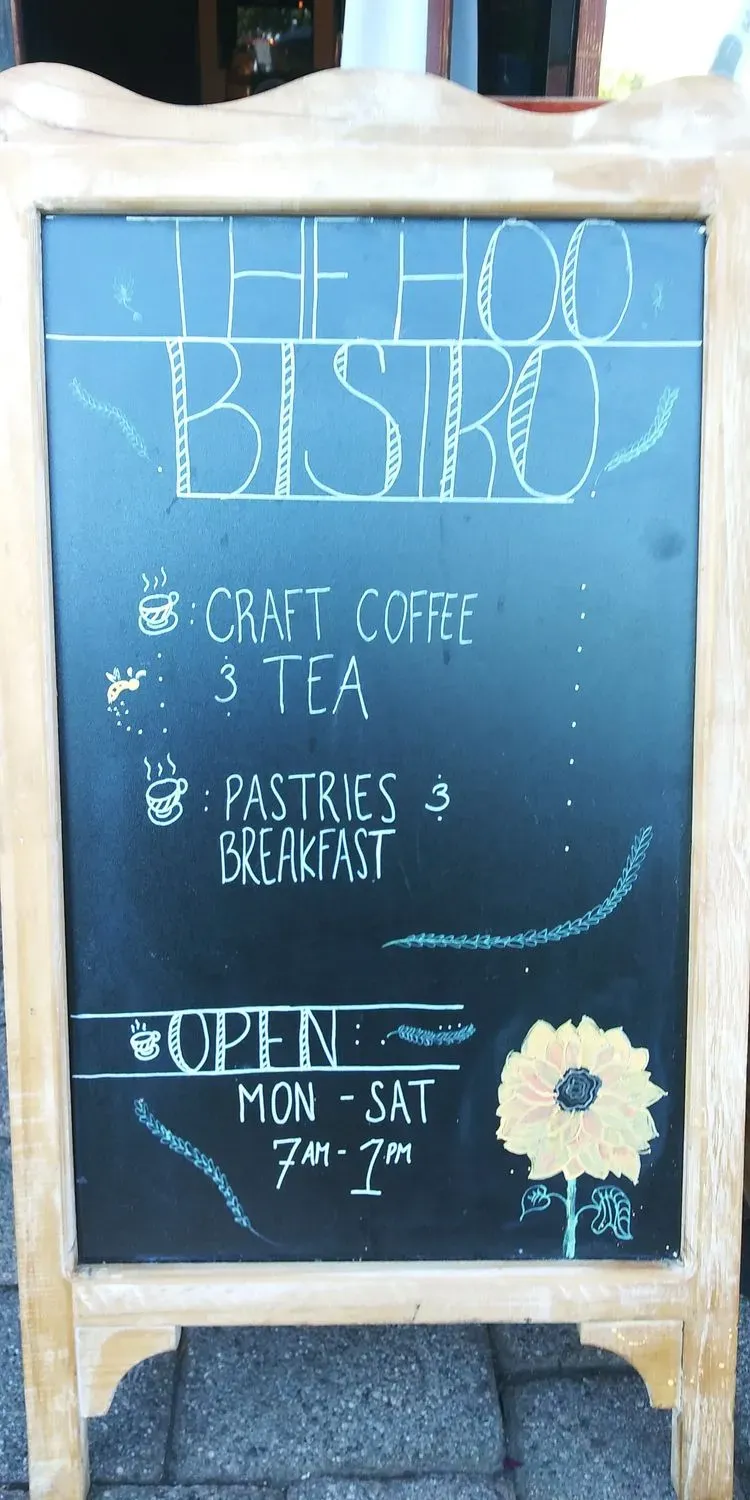 THE HOO
BISTRO
: CRAFT COFFEE
& TEA
: PASTRIES &
BREAKFAST
OPEN:
MON - SAT
7AM - 1PM